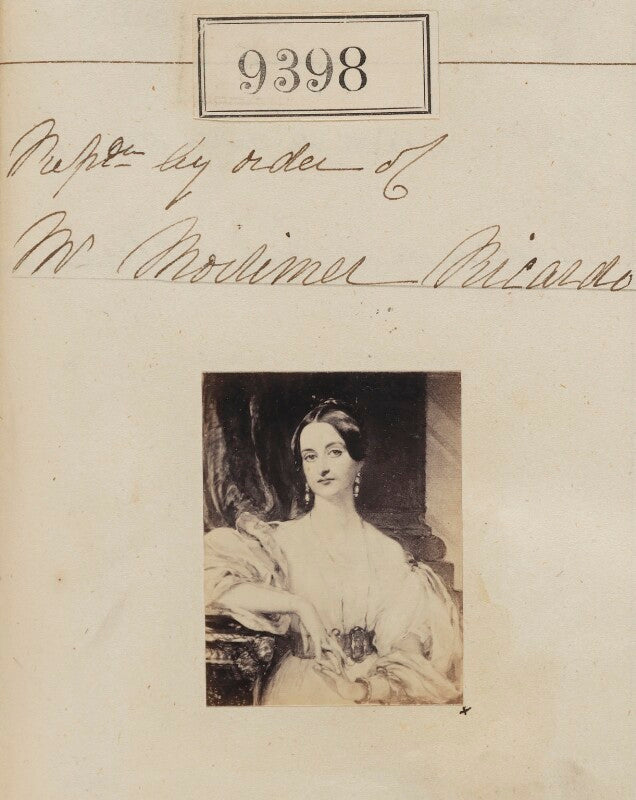 9398
Repdn by order of
Mr Mortimer Ricardo
x